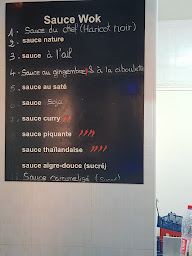 Sauce Wok
1. Sauce du chef (Haricot noir)
2. sauce nature
3. sauce à l'ail
4. Sauce au gingembre & à la ciboulette
5. sauce au saté
sauce Soja
sauce curry
sauce piquante
sauce thaïlandaise
sauce aigre-douce (sucré)
Sauce caramélisé (sucré)